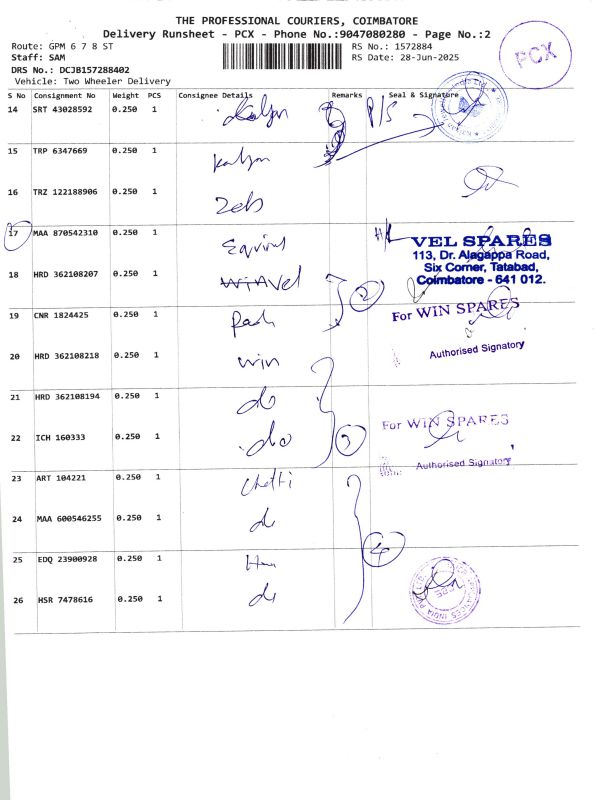 THE PROFESSIONAL COURIERS, COIMBATORE
Delivery Runsheet - PCX - Phone No.:9047080280 - Page No.:2
Route: GPM 6 7 8 ST
RS No.: 1572884
Staff: SAM
RS Date: 28-Jun-2025
DRS No.: DCJB157288402
Vehicle: Two Wheeler Delivery
PCX
S No Consignment No Weight PCS Consignee Details Remarks Seal & Signature
14 SRT 43028592 0.250 1 Kalyn P/S
15 TRP 6347669 0.250 1 Kalyn
16 TRZ 122188906 0.250 1 Zeb
17 MAA 870542310 0.250 1
VEL SPARES
113, Dr. Alagappa Road,
Six Corner, Tatabad,
Coimbatore - 641 012.
18 HRD 362108207 0.250 1 Vel 2
19 CNR 1824425 0.250 1
For WIN SPARES
Authorised Signatory
20 HRD 362108218 0.250 1 win
21 HRD 362108194 0.250 1 do
22 ICH 160333 0.250 1 do 3
For WIN SPARES
Authorised Signatory
23 ART 104221 0.250 1 Chetti
24 MAA 600546255 0.250 1 do
25 EDQ 23900928 0.250 1 4
26 HSR 7478616 0.250 1 do